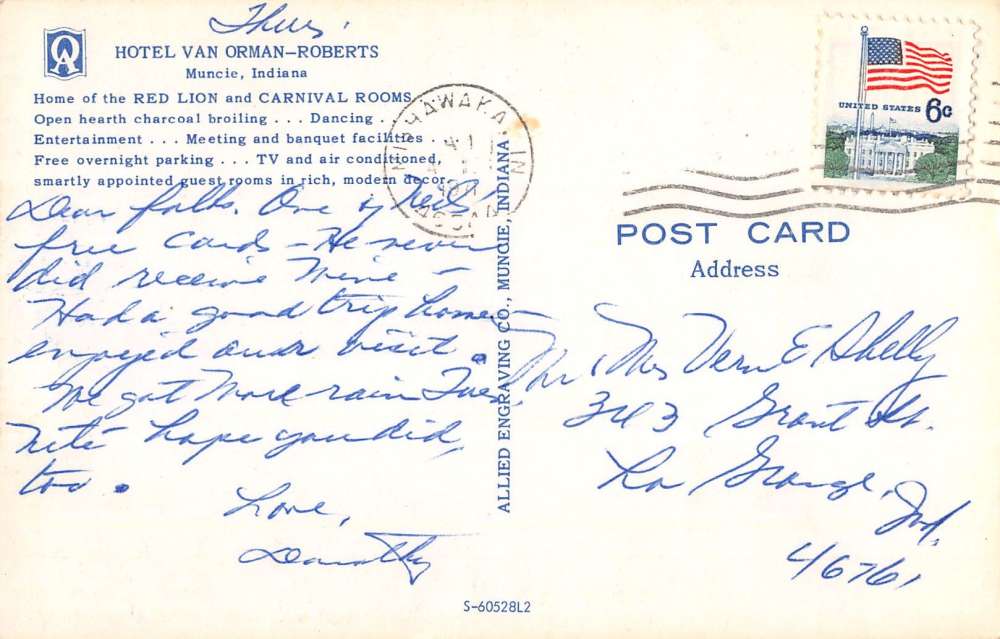 Thurs.
HOTEL VAN ORMAN–ROBERTS
Muncie, Indiana
Home of the RED LION and CARNIVAL ROOMS
Open hearth charcoal broiling . . . Dancing . .
Entertainment . . . Meeting and banquet facilities . .
Free overnight parking . . . TV and air conditioned,
smartly appointed guest rooms in rich, modern decor.
Dear folks. One of
free cards – He never
did receive mine –
Had a good trip home –
enjoyed our visit.
We got more rain Tues.
nite hope you did,
too.
Love,
Dorothy
MISHAWAKA, IN
ALLIED ENGRAVING CO., MUNCIE, INDIANA
UNITED STATES 6c
POST CARD
Address
Mr Mrs Vern E Shelly
343 Grant St.
La Grange, Ind.
46761
S-60528L2